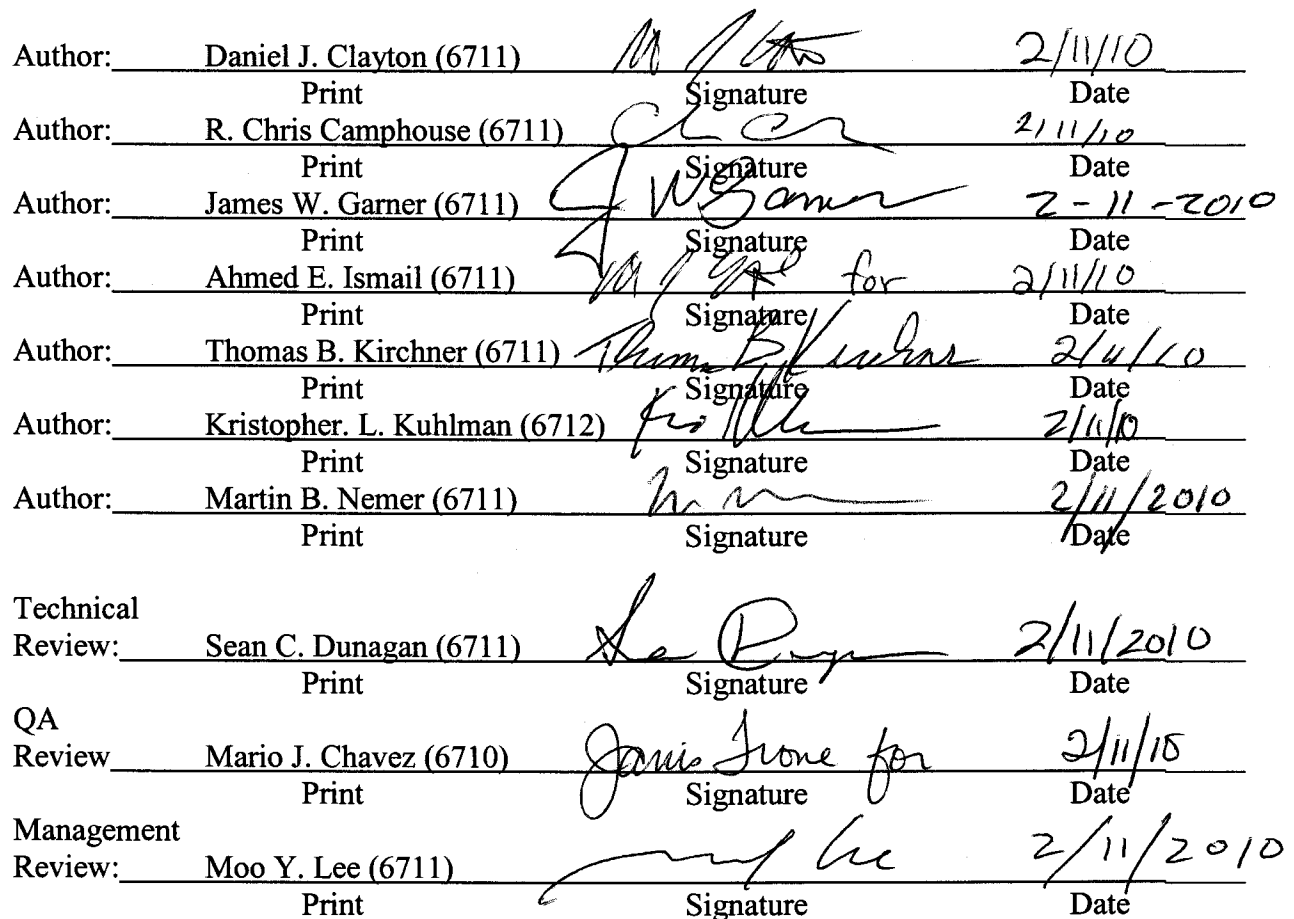 Author: Daniel J. Clayton (6711) 2/11/10
Print Signature Date
Author: R. Chris Camphouse (6711) 2/11/10
Print Signature Date
Author: James W. Garner (6711) J W Garner 2-11-2010
Print Signature Date
Author: Ahmed E. Ismail (6711) for 2/11/10
Print Signature Date
Author: Thomas B. Kirchner (6711) Thomas B. Kirchner
Print Signature Date
Author: Kristopher. L. Kuhlman (6712) 2/11/10
Print Signature Date
Author: Martin B. Nemer (6711) 2/11/2010
Print Signature Date
Technical
Review: Sean C. Dunagan (6711) 2/11/2010
Print Signature Date
QA
Review Mario J. Chavez (6710) Janis Trone for
Print Signature Date
Management
Review: Moo Y. Lee (6711) Lee 2/11/2010
Print Signature Date